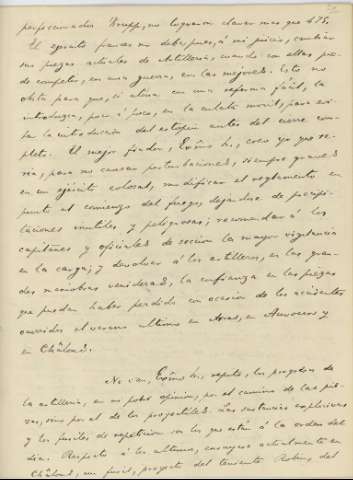 perfeccionados Krupp, no lograron clavar mas que 475.
El ejército frances no debe, pues, á mi juicio, cambiar
sus piezas actuales de Artillería, cuando con ellas pue-
de competir, en una guerra, con las mejores. Esto no
obsta para que, si atina con una reforma fácil, la
introduzca, poco á poco, en la culata movil, para evi-
tar la introduccion del estopin antes del cierre com-
pleto. El mejor freno, Exmo Sr., creo yo que se-
ria, para no causar perturbaciones, siempre graves
en un ejército colosal, modificar el reglamento, en
punto al comienzo del fuego, dejándose de precipi-
taciones inutiles y peligrosas; recomendar á los
capitanes y oficiales de seccion la mayor vigilancia
en la carga; y devolver á los artilleros, en las gran-
des maniobras venideras, la confianza en las piezas
que puedan haber perdido con ocasion de los accidentes
ocurridos el verano ultimo en Aviso, en Auvours y
en Châlons.
No van, Exmo Sr., repito, los progresos de
la artilleria, en mi pobre opinion, por el camino de las pie-
zas, sino por el de los proyectiles. Las sustancias explosivas
y los fusiles de repeticion son los que están á la orden del
dia. Respecto á los ultimos, ensayase actualmente en
Châlons, un fusil, proyecto del teniente Robin, del